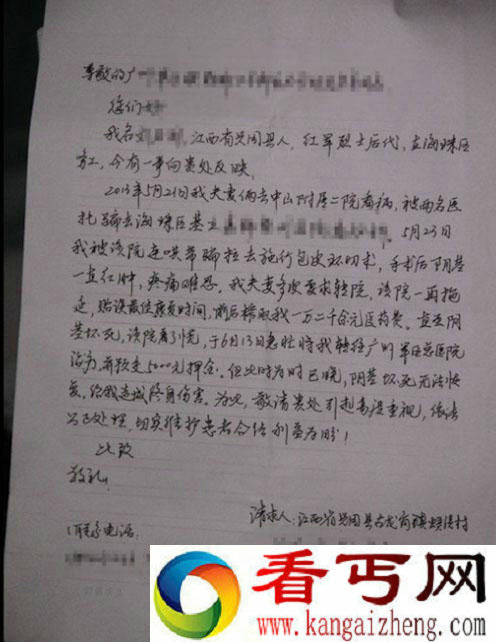 尊敬的广
您们好
我名 江西省兴国县人,红军烈士后代,在海珠区
务工,今有一事向贵处反映。
2013年5月21日我夫妻俩去中山附属二院看病,被两名医
托骗去海珠区基立 5月23日
我被该院连哄带骗拉去施行包皮环切术,手术后阴茎
一直红肿,疼痛难忍。我夫妻多次要求转院,该院一再拖
延,贻误最佳康复时间,前后榨取我一万二千余元医药费。直至阴
茎坏死,该院着了慌,于6月13日急忙将我转往广州军区总医院
治疗,并预交5000元押金。但此时为时已晚,阴茎坏死无法恢
复,给我造成终身伤害。为此,敬请贵处引起高度重视,依法
公正处理,切实维护患者合法利益为盼!
此致
敬礼
请求人:江西省兴国县古龙岗镇 村
联系电话:
看丐网
www.kangaizheng.com